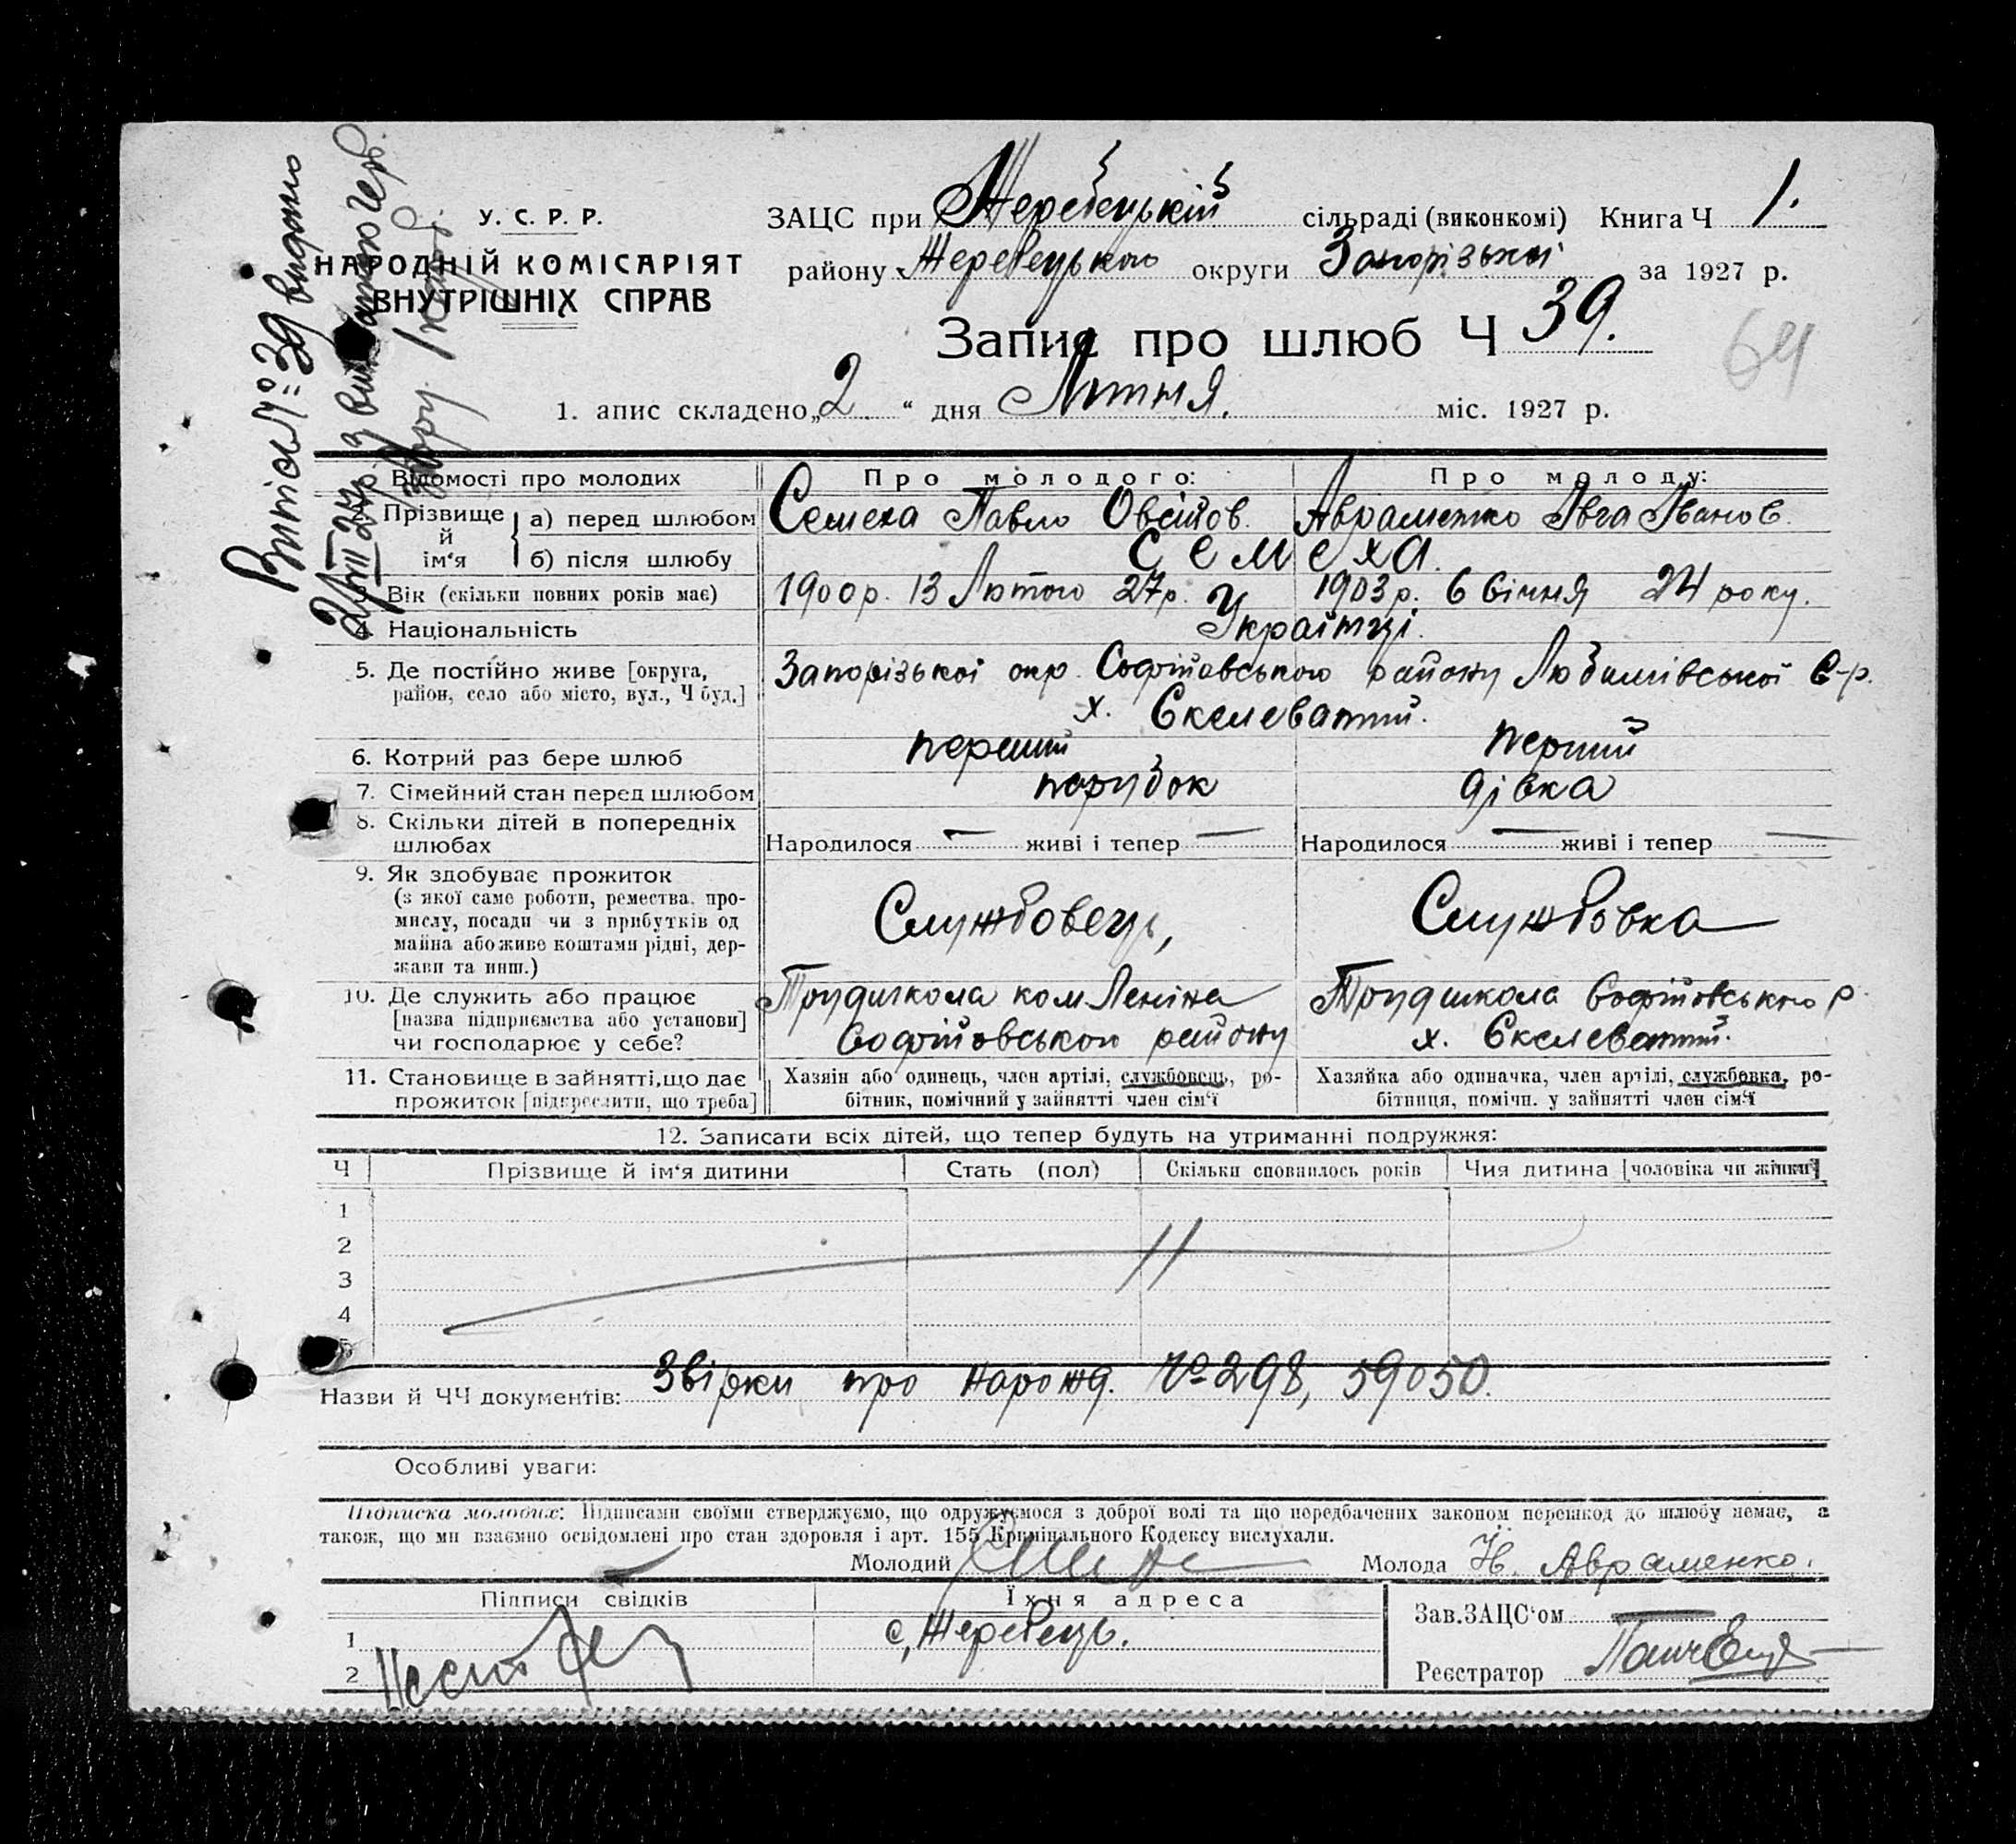 У. С. Р. Р.
НАРОДНІЙ КОМІСАРІЯТ
ВНУТРІШНІХ СПРАВ
ЗАЦС при Жеребецькій сільраді (виконкомі) Книга Ч 1.
району Жеребецького округи Запорізької за 1927 р.
Запис про шлюб Ч 39.
64
1. апис складено „2“ дня Літня міс. 1927 р.
Витіс № 39 видано
Відомості про молодих
Про молодого:
Про молоду:
Прізвище й ім‘я
а) перед шлюбом
Семеха Павло Овсійов.
Авраменко Івга Іванов.
б) після шлюбу
Семеха.
3. Вік (скільки повних років має)
1900р. 13 Лютого 27р.
1903р. 6 Січня 24 року.
4. Національність
Українці.
5. Де постійно живе [округа,
район, село або місто, вул., Ч буд.]
Запорізької окр. Софіївського району Любимівської С-р.
х. Скелеватий.
6. Котрий раз бере шлюб
перший
перший
7. Сімейний стан перед шлюбом
парубок
дівка
8. Скільки дітей в попередніх
шлюбах
Народилося — живі і тепер —
Народилося — живі і тепер —
9. Як здобуває прожиток
(з якої саме роботи, ремества, про-
мислу, посади чи з прибутків од
майна або живе коштами рідні, дер-
жави та инш.)
Службовець,
Службовка
10. Де служить або працює
[назва підприємства або установи]
чи господарює у себе?
Трудшкола ком Леніна
Софіївського району
Трудшкола Софіївського р.
х. Скелеватий.
11. Становище в зайнятті, що дає
прожиток [підкреслити, що треба]
Хазяін або одинець, член артілі, службовець, ро-
бітник, помічний у зайнятті член сім‘ї
Хазяйка або одиначка, член артілі, службовка, ро-
бітниця, помічн. у зайнятті член сім‘ї
12. Записати всіх дітей, що тепер будуть на утриманні подружжя:
Ч
Прізвище й ім‘я дитини
Стать (пол)
Скільки сповнилось років
Чия дитина [чоловіка чи жінки]
1
2
3
4
5
Назви й ЧЧ документів: Звірки про нарожд. № 298, 59050.
Особливі уваги:
Підписка молодих: Підписами своїми стверджуємо, що одружуємося з доброї волі та що передбачених законом перешкод до шлюбу немає, а
також, що ми взаємно освідомлені про стан здоровля і арт. 155 Кримінального Кодексу вислухали.
Молодий
Молода Н. Авраменко.
Підписи свідків
Їхня адреса
1
с, Жеребець.
2
Зав.ЗАЦС‘ом —
Реєстратор